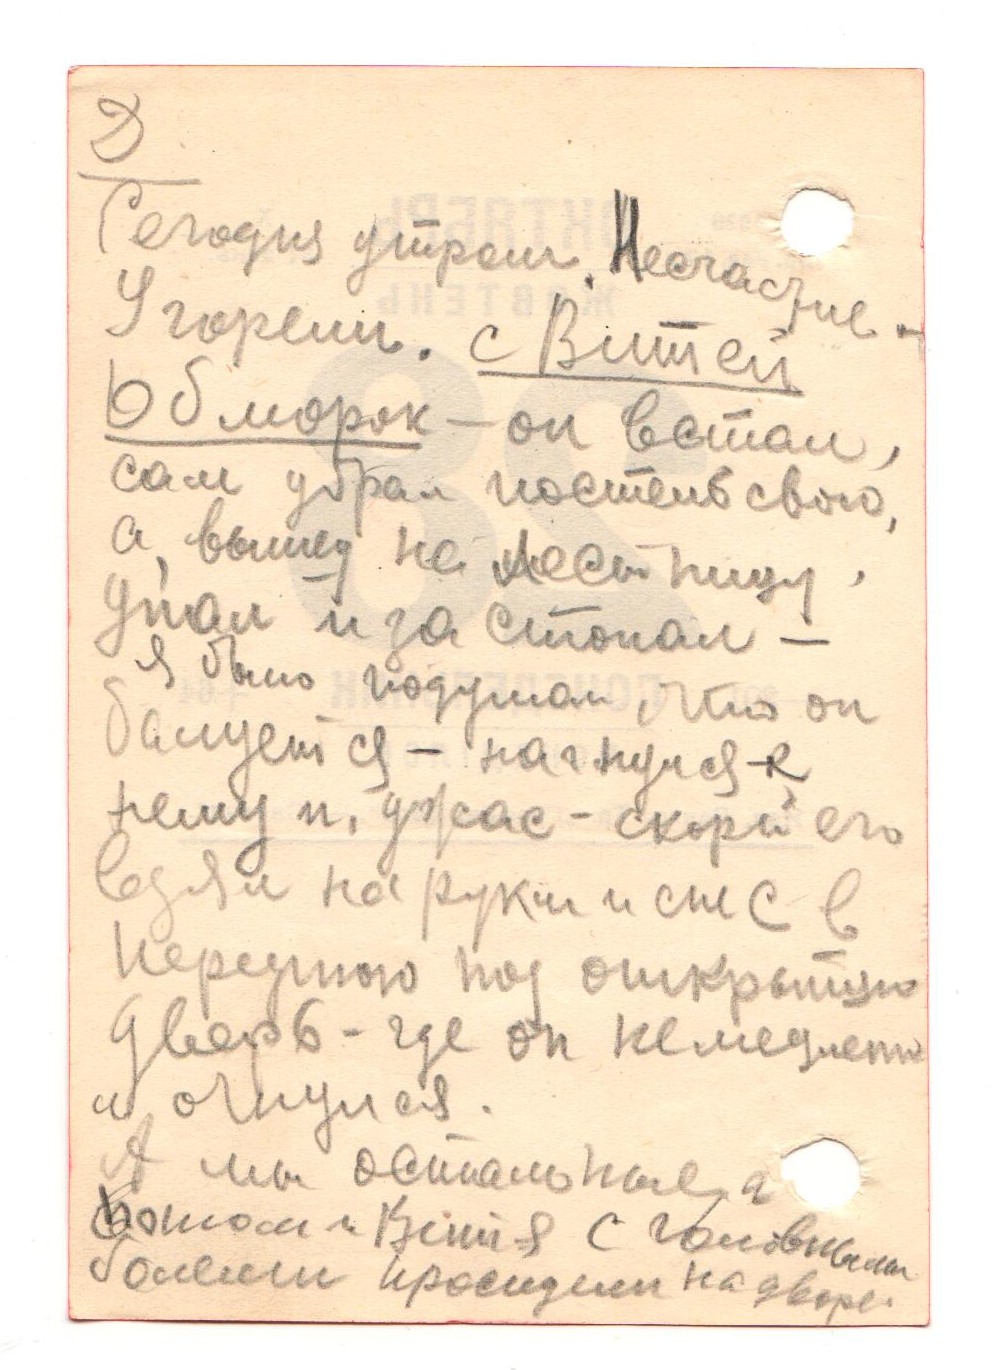 Д
Сегодня утром. Несчастие -
Угорели. с Витей
Обморок — он встал,
сам убрал постель свою,
а, вышед на лестницу,
упал и застонал —
я было подумал, что он
балуется — нагнулся к
нему и, ужас - скорй его
взял на руки и снес в
переднюю под открытую
дверь - где он немедленно
и очнулся.
А мы остальные, а
потом и Витя с головными
болями просидели на дворе.